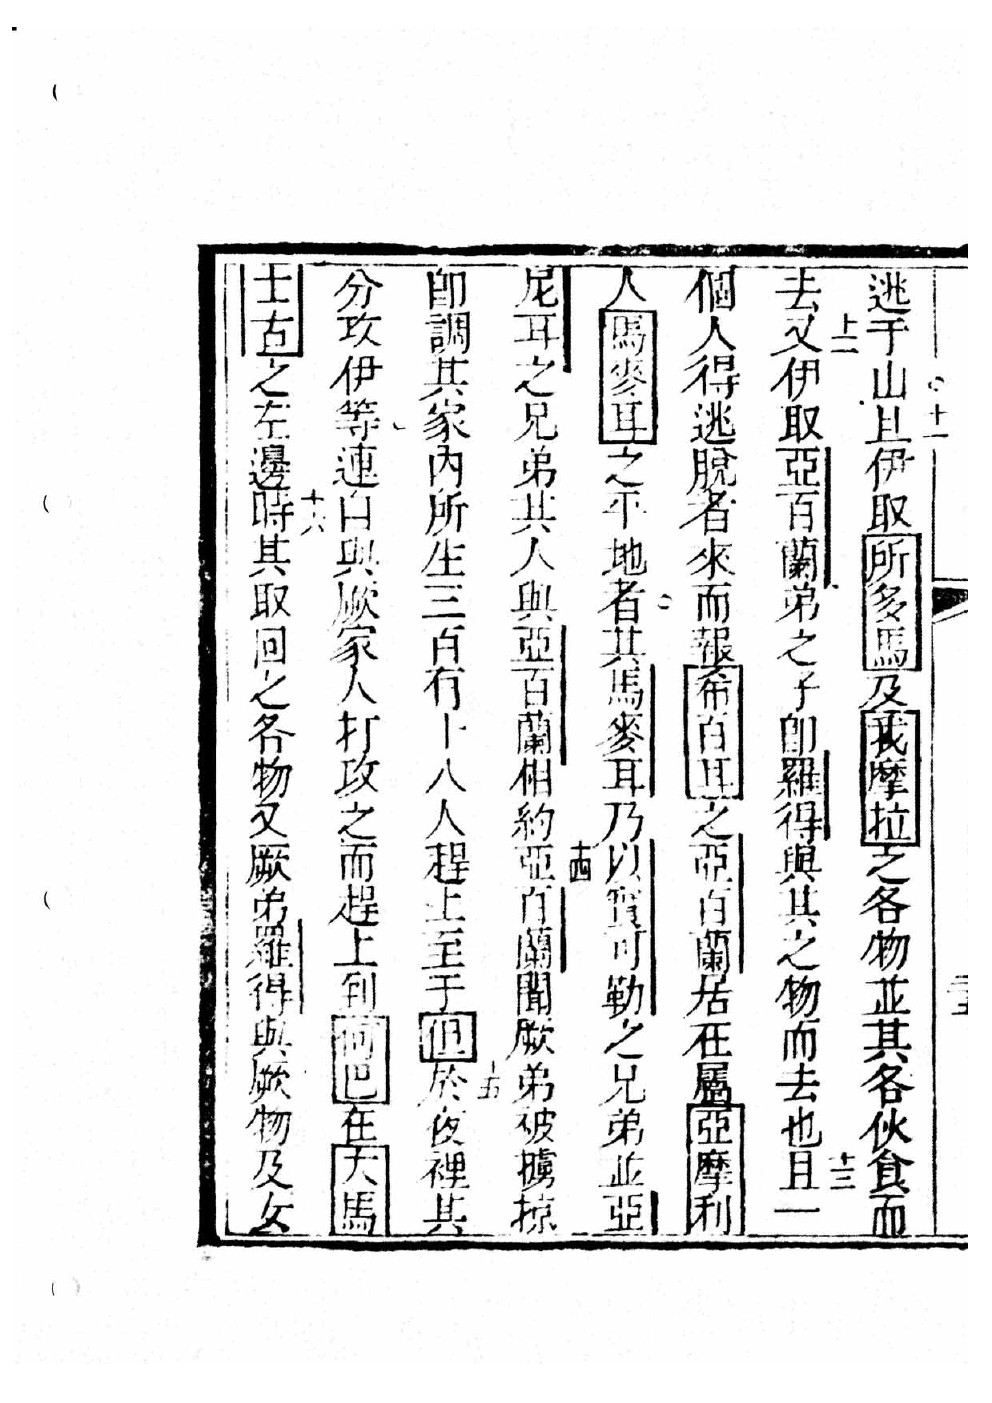 逃于山十一且伊取所多馬及我摩拉之各物並其各伙食而
去十二又伊取亞百蘭弟之子卽羅得與其之物而去也十三且一
個人得逃脫者來而報希百耳之亞百蘭居在屬亞摩利
人馬麥耳之平地者其馬麥耳乃以實可勒之兄弟並亞
尼耳之兄弟其人與亞百蘭相約十四亞百蘭聞厥弟被擄掠
卽調其家內所生三百有十八人趕上至于但十五於夜裡其
分攻伊等連自與厥家人打攻之而趕上到何巴在大馬
士古之左邊十六時其取回之各物又厥弟羅得與厥物及女